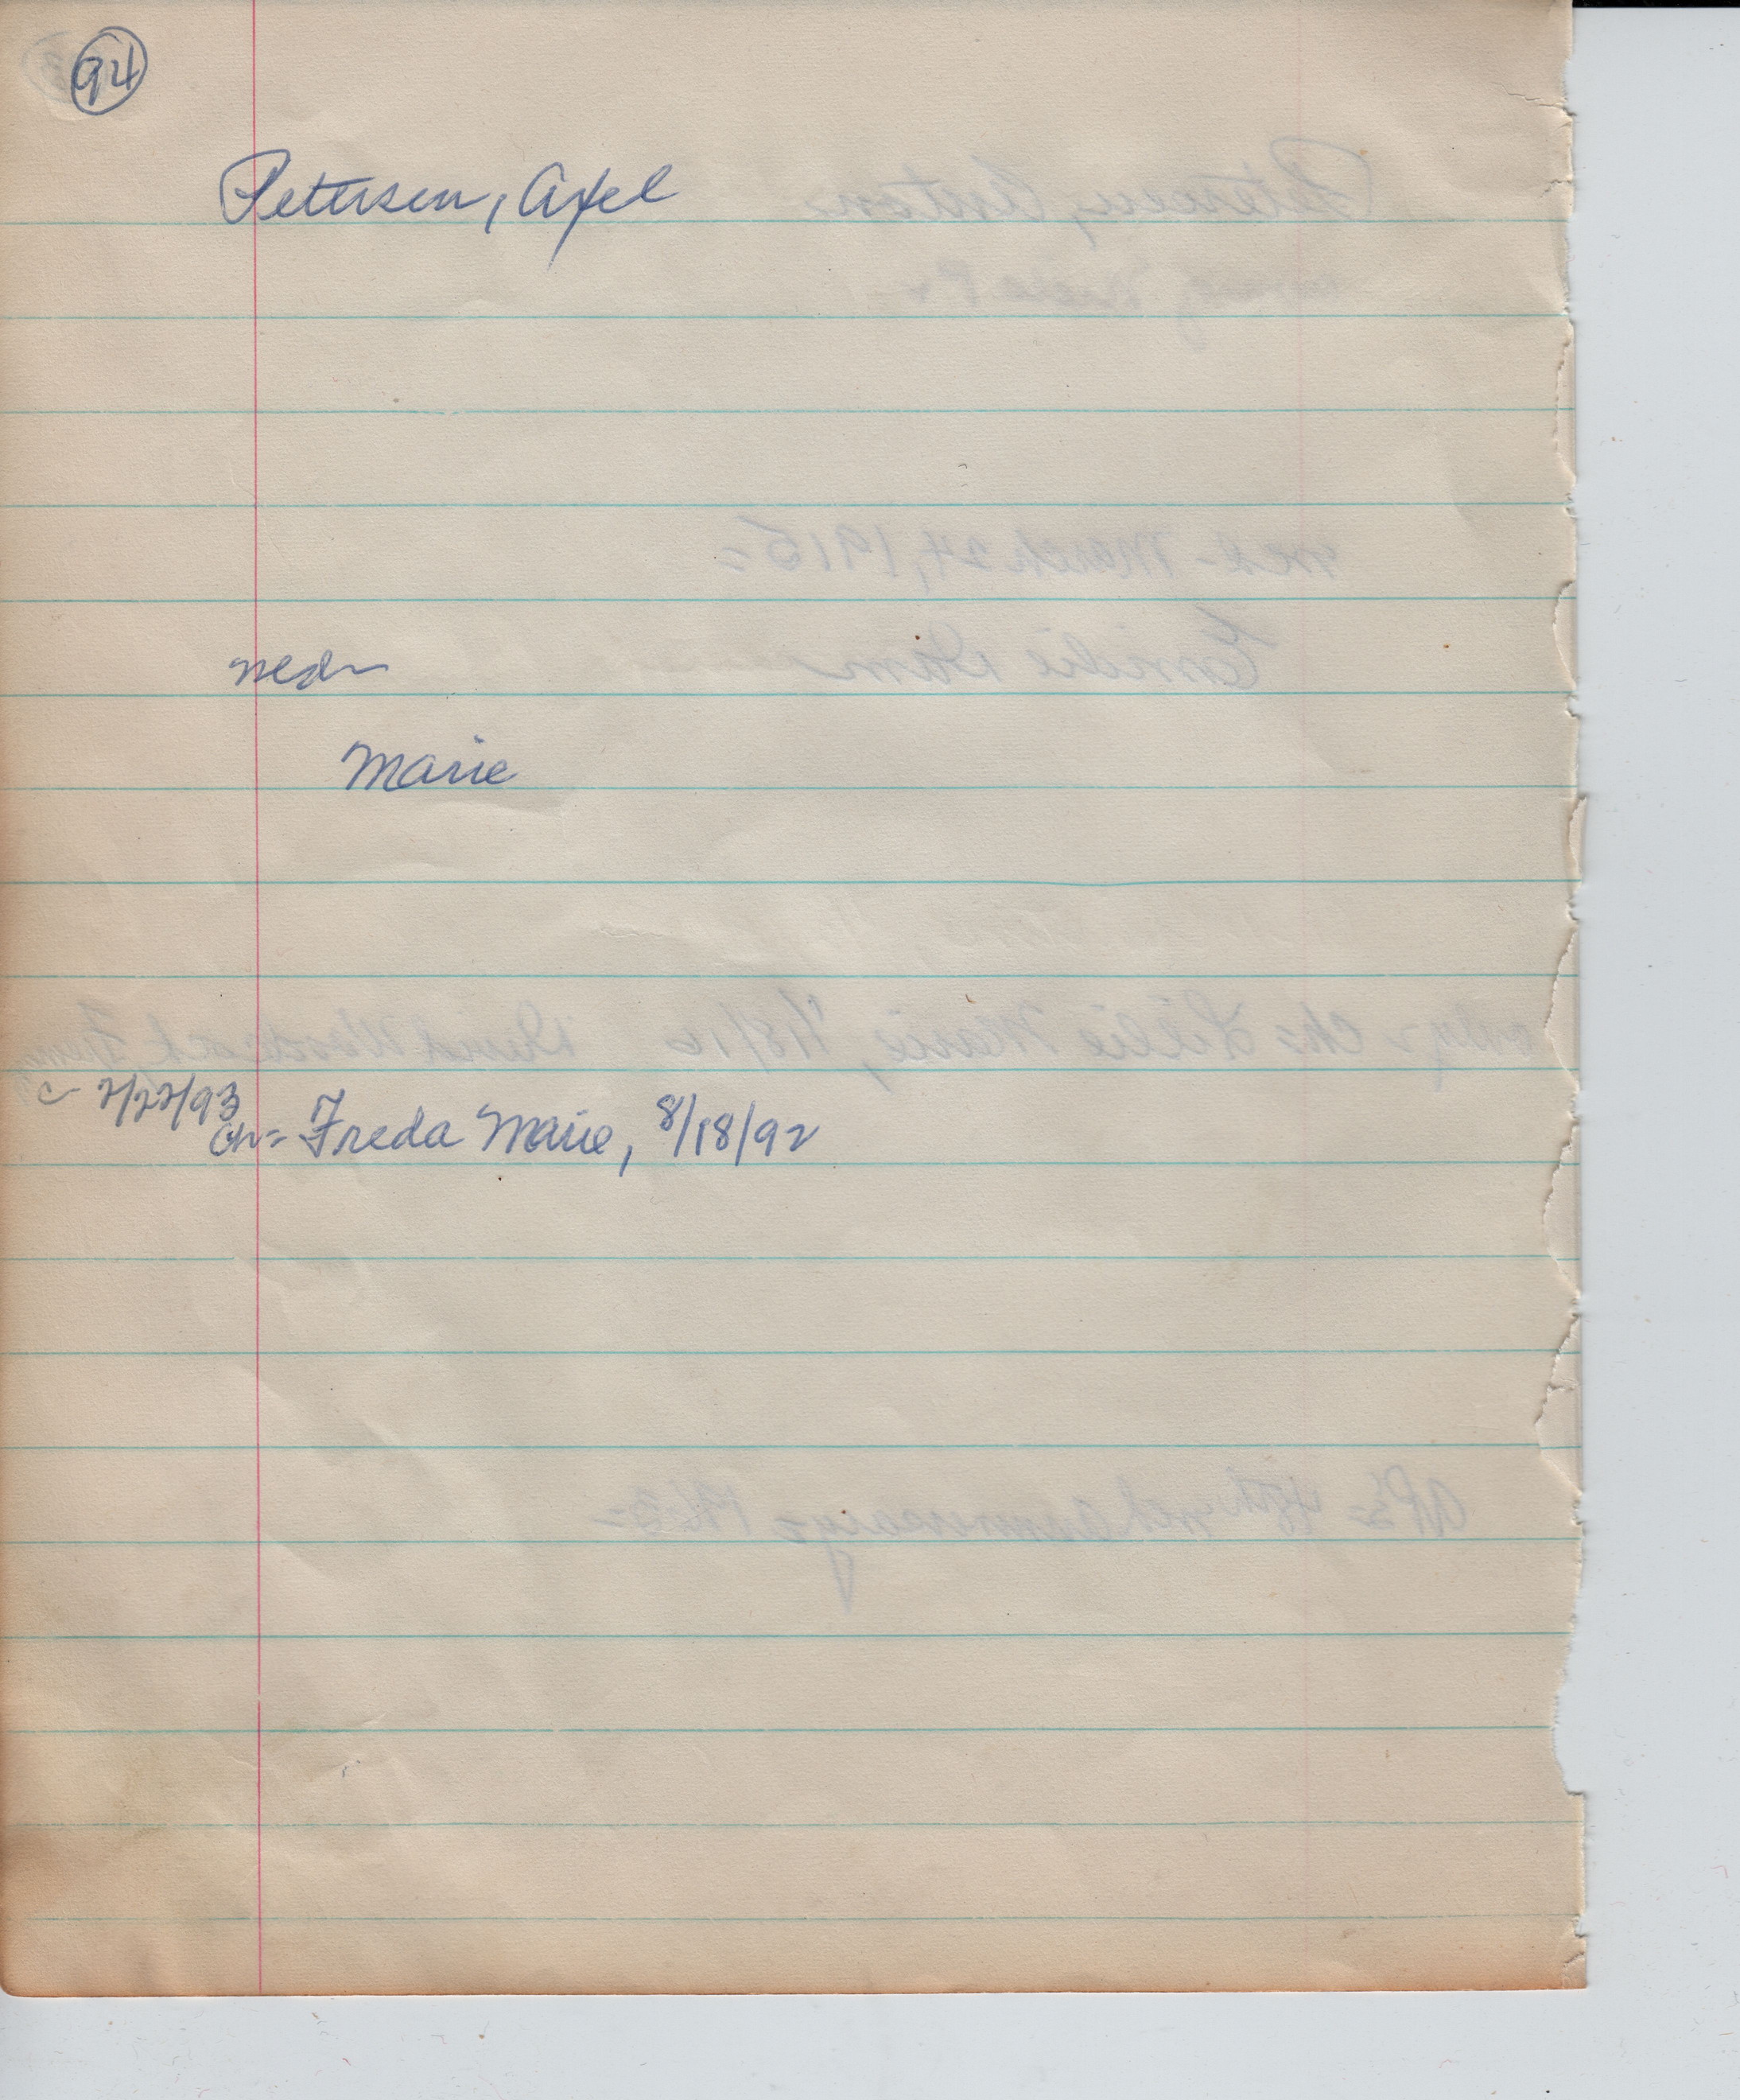 94
Petersen, Axel
med-
Marie
c- 2/22/93
Ch= Freda Marie, 8/18/92